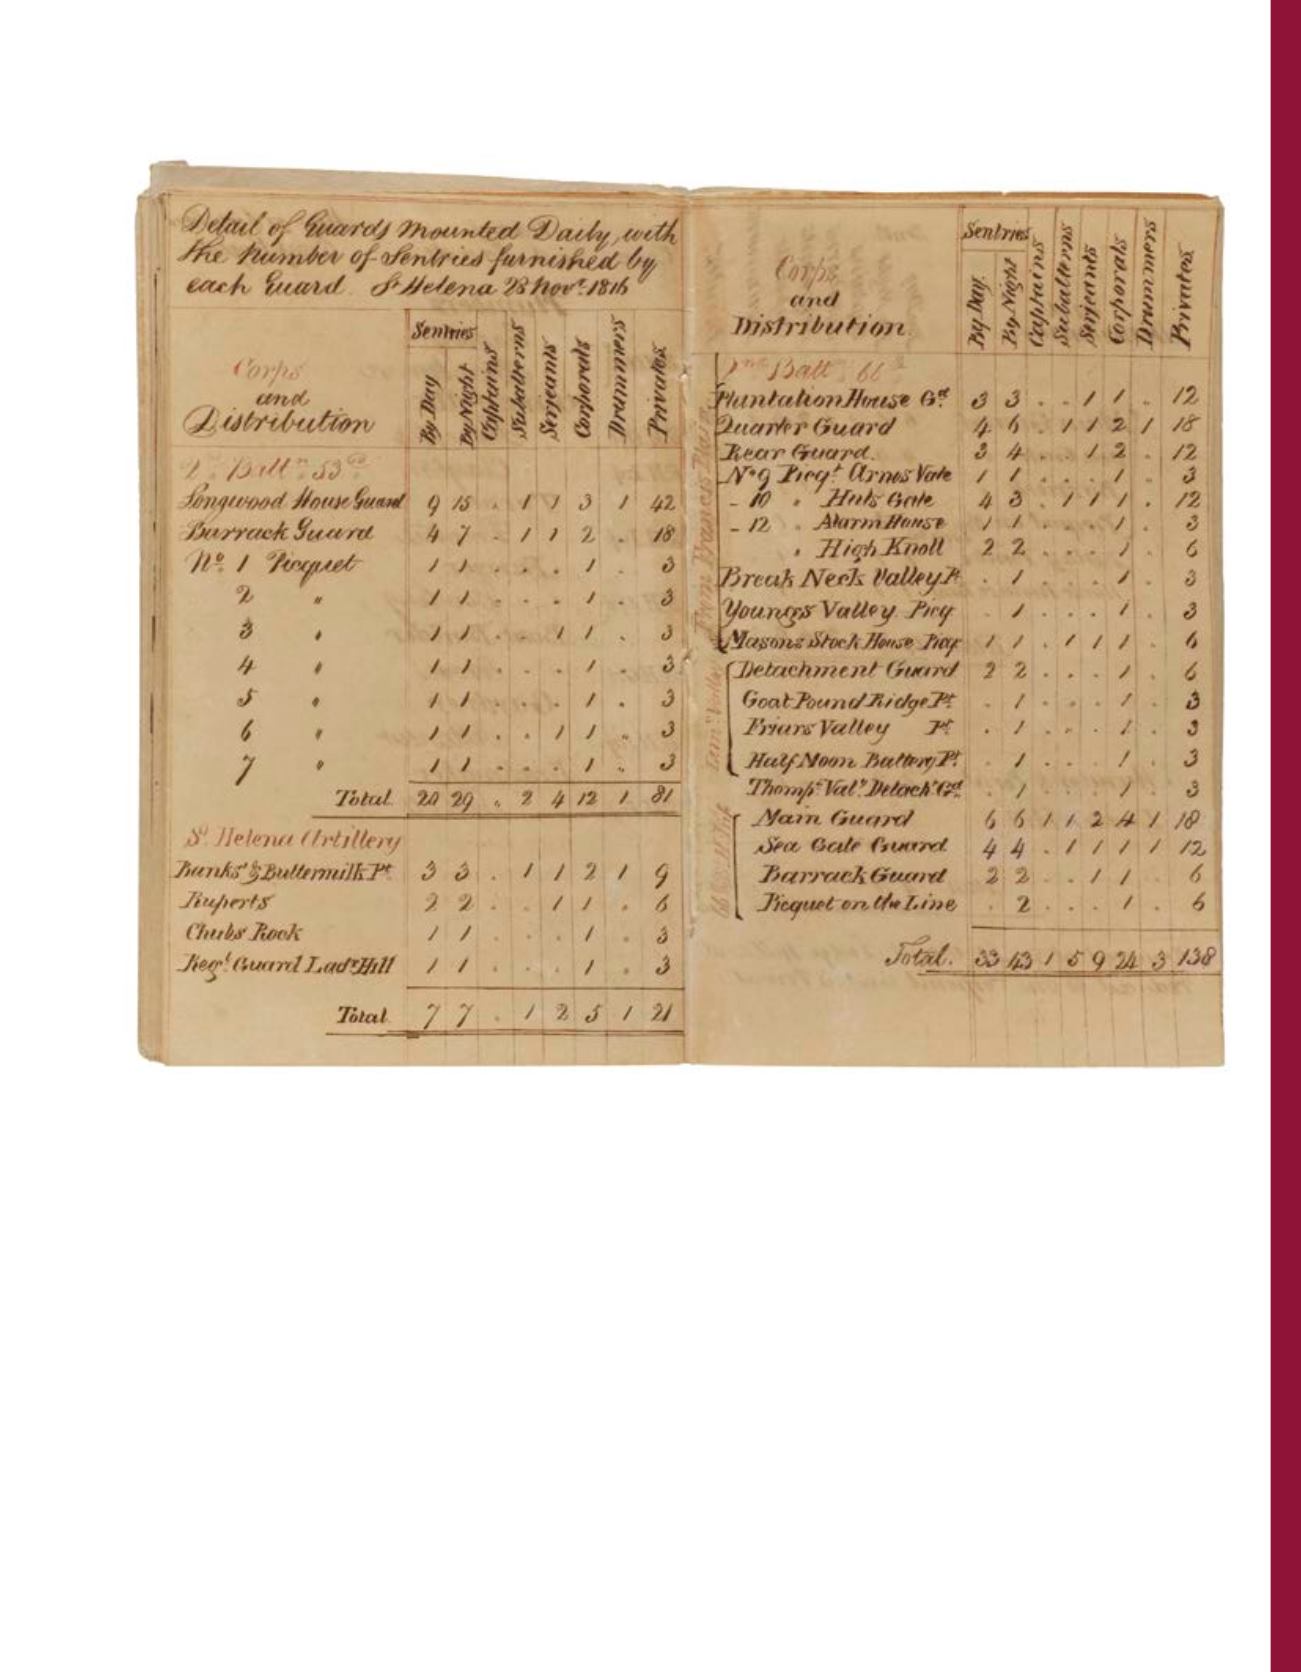 Detail of Guards Mounted Daily, with
the Number of Sentries furnished by
each Guard. St Helena 28 Novr. 1816
Corps and Distribution Sentries By Day By Night Captains Subalterns Serjeants Corporals Drummers Privates
2d. Battn. 53rd
Longwood House Guard 9 15 . 1 1 3 1 42
Barrack Guard 4 7 . 1 1 2 . 18
No. 1 Picquet 1 1 . . . 1 . 3
2 " 1 1 . . . 1 . 3
3 " 1 1 . . 1 1 . 3
4 " 1 1 . . . 1 . 3
5 " 1 1 . . . 1 . 3
6 " 1 1 . . 1 1 . 3
7 " 1 1 . . . 1 . 3
Total 20 29 . 2 4 12 1 81
St. Helena Artillery
Banks' & Buttermilk Pt. 3 3 . 1 1 2 1 9
Ruperts 2 2 . . 1 1 . 6
Chubs Rock 1 1 . . . 1 . 3
Regt. Guard Ladr. Hill 1 1 . . . 1 . 3
Total 7 7 . 1 2 5 1 21
Corps and Distribution Sentries By Day By Night Captains Subalterns Serjeants Corporals Drummers Privates
Batt 66
Plantation House Gd. 3 3 . . 1 1 . 12
Quarter Guard 4 6 . 1 1 2 1 18
Rear Guard. 3 4 . . 1 2 . 12
No 9 Picqt. Arnos Vale 1 1 . . . 1 . 3
- 10 " Huts Gate 4 3 . 1 1 1 . 12
- 12 " Alarm House 1 1 . . . 1 . 3
" High Knoll 2 2 . . . 1 . 6
Break Neck Valley P. . 1 . . . 1 . 3
Youngs Valley. Picq . 1 . . . 1 . 3
Masons Stock House Picq 1 1 . 1 1 1 . 6
Detachment Guard 2 2 . . . 1 . 6
Goat Pound Ridge Pt. . 1 . . . 1 . 3
Friars Valley Pt. . 1 . . . 1 . 3
Half Moon Battery Pt. . 1 . . . 1 . 3
Thomps. Valy. Detacht. Gd. . 1 . . . 1 . 3
Main Guard 6 6 1 1 2 4 1 18
Sea Gate Guard 4 4 . 1 1 1 1 12
Barrack Guard 2 2 . . 1 1 . 6
Picquet on the Line . 2 . . . 1 . 6
Total. 33 43 1 5 9 24 3 138